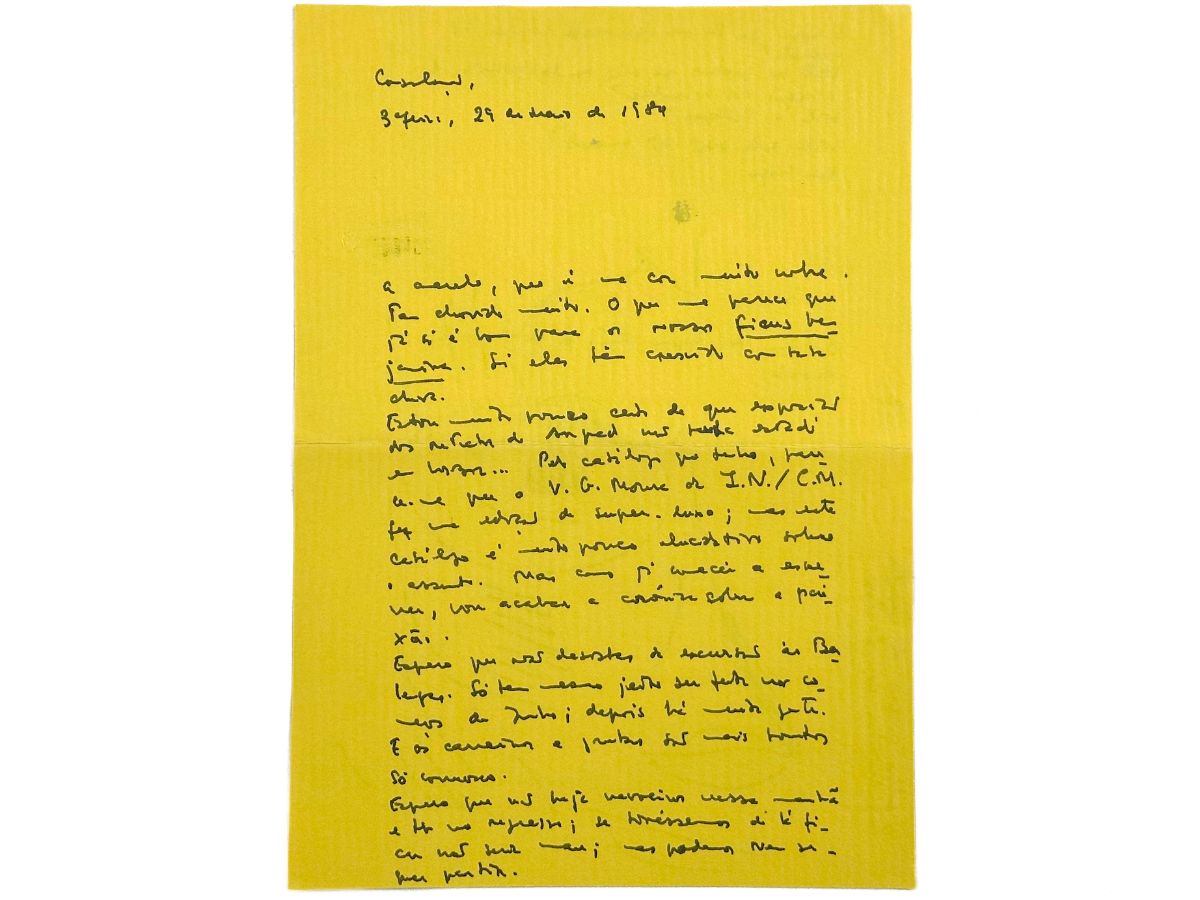 3ª feira, 29 de Maio de 1984
a amarelo, que é uma cor muito nobre.
Tem chovido muito. O que me parece que
já só é bom para os nossos ficus ben-
jamina. Só eles têm crescido com tanta
chuva.
Estou muito pouco certo de que exposição
dos retratos de não tenha estado
em Lisboa... Pelo catálogo que tenho, pare-
ce-me que o V. G. Moura da I.N./C.M.
fez uma edição de super-luxo; mas este
catálogo é muito pouco elucidativo sobre
o assunto. Mas como já comecei a escre-
ver, vou acabar a crónica sobre a pai-
xão.
Espero que não desistas da excursão às Ber-
lengas. Só tem mesmo jeito ser feita nos co-
meços de Junho; depois há muita gente.
E os carreiros e grutas são mais bonitos
só connosco.
Espero que não haja nevoeiro nessa manhã
e no regresso; se tivéssemos de lá fi-
car não seria mau; mas podemos nem se-
quer partir.